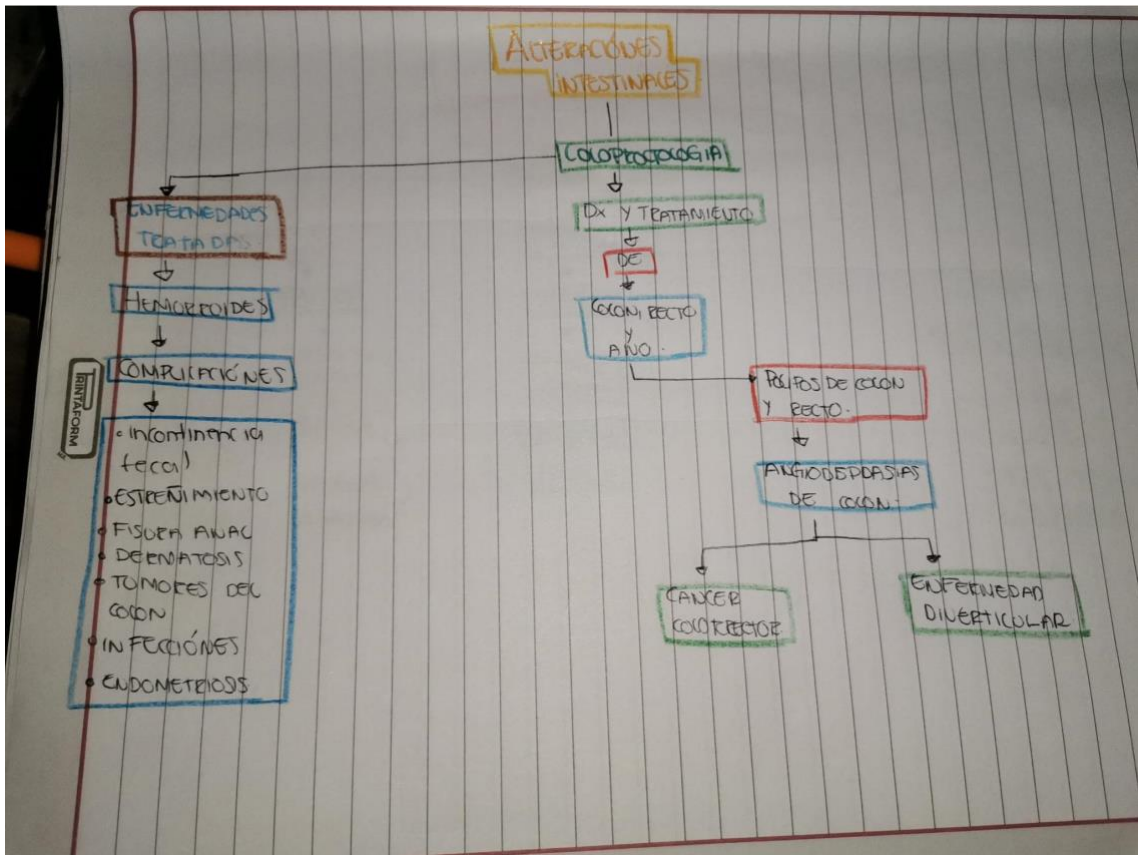 ALTERACIÓNES
INTESTINALES
COLOPROCTOLOGIA
ENFERMEDADES
TRATADAS
HEMORROIDES
COMPLICACIÓNES
• Incontinencia
fecal
• ESTREÑIMIENTO
• FISURA ANAL
• DERMATOSIS
• TUMORES DEL
COLON
• INFECCIÓNES
• ENDOMETRIOSIS
Dx Y TRATAMIENTO
DE
COLON, RECTO
Y
ANO.
POLIPOS DE COLON
Y RECTO.
DE COLON.
CANCER
COLORRECTOR
ENFERMEDAD
DIVERTICULAR
PRINTAFORM